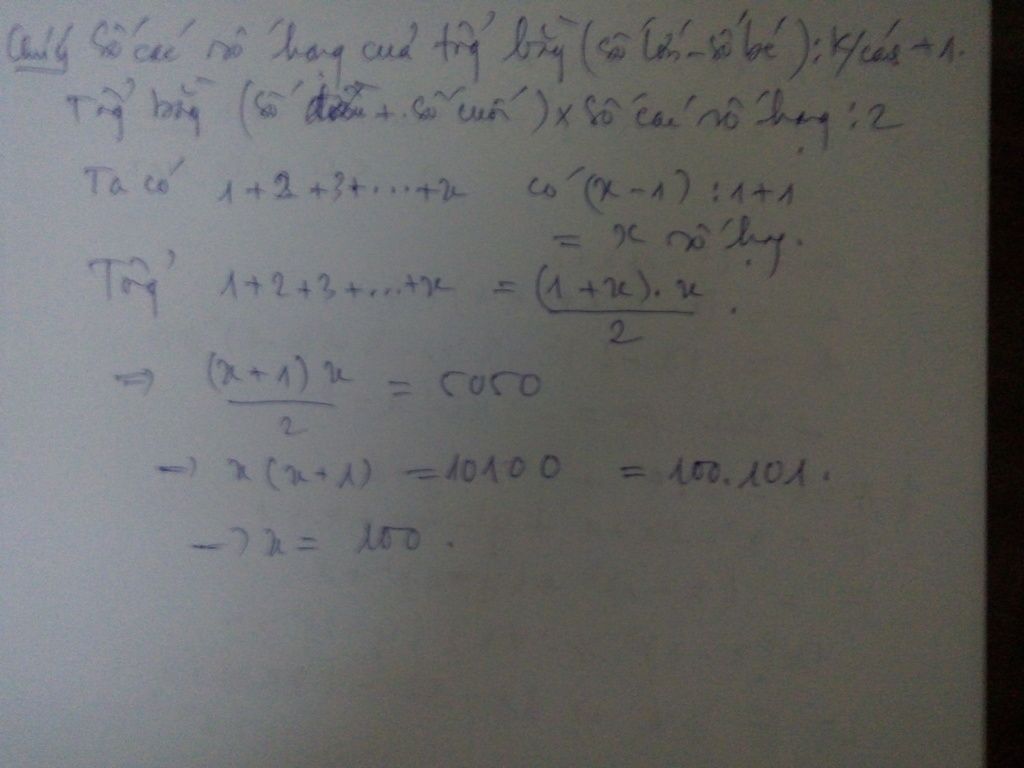 Chú ý Số các số hạng của tổng bằng (số lớn - số bé) : k/cách + 1.
Tổng bằng (số đầu + số cuối) x số các số hạng : 2
Ta có 1+2+3+...+x có (x-1) : 1+1
= x số hạng.
Tổng 1+2+3+...+x = (1+x).x / 2 .
=> (x+1)x / 2 = 5050
-> x(x+1) = 10100 = 100.101.
-> x = 100.